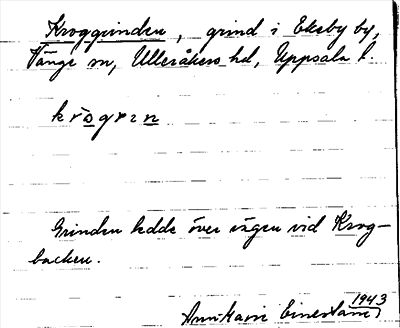 Kroggrinden, grind i Ekeby by,
Vänge sn, Ulleråkers hd, Uppsala l.
krògrın
Grinden ledde över vägen vid Krog-
backen.
1943
Ann-Marie